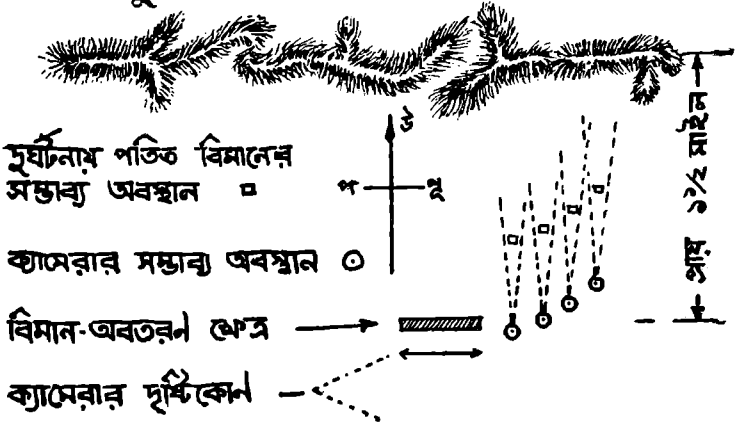 উ
দুর্ঘটনায় পতিত বিমানের
সম্ভাব্য অবস্থান
প
পূ
ক্যামেরার সম্ভাব্য অবস্থান
বিমান-অবতরণ ক্ষেত্র
ক্যামেরার দৃষ্টিকোণ
প্রায় ১ ১/২ মাইল